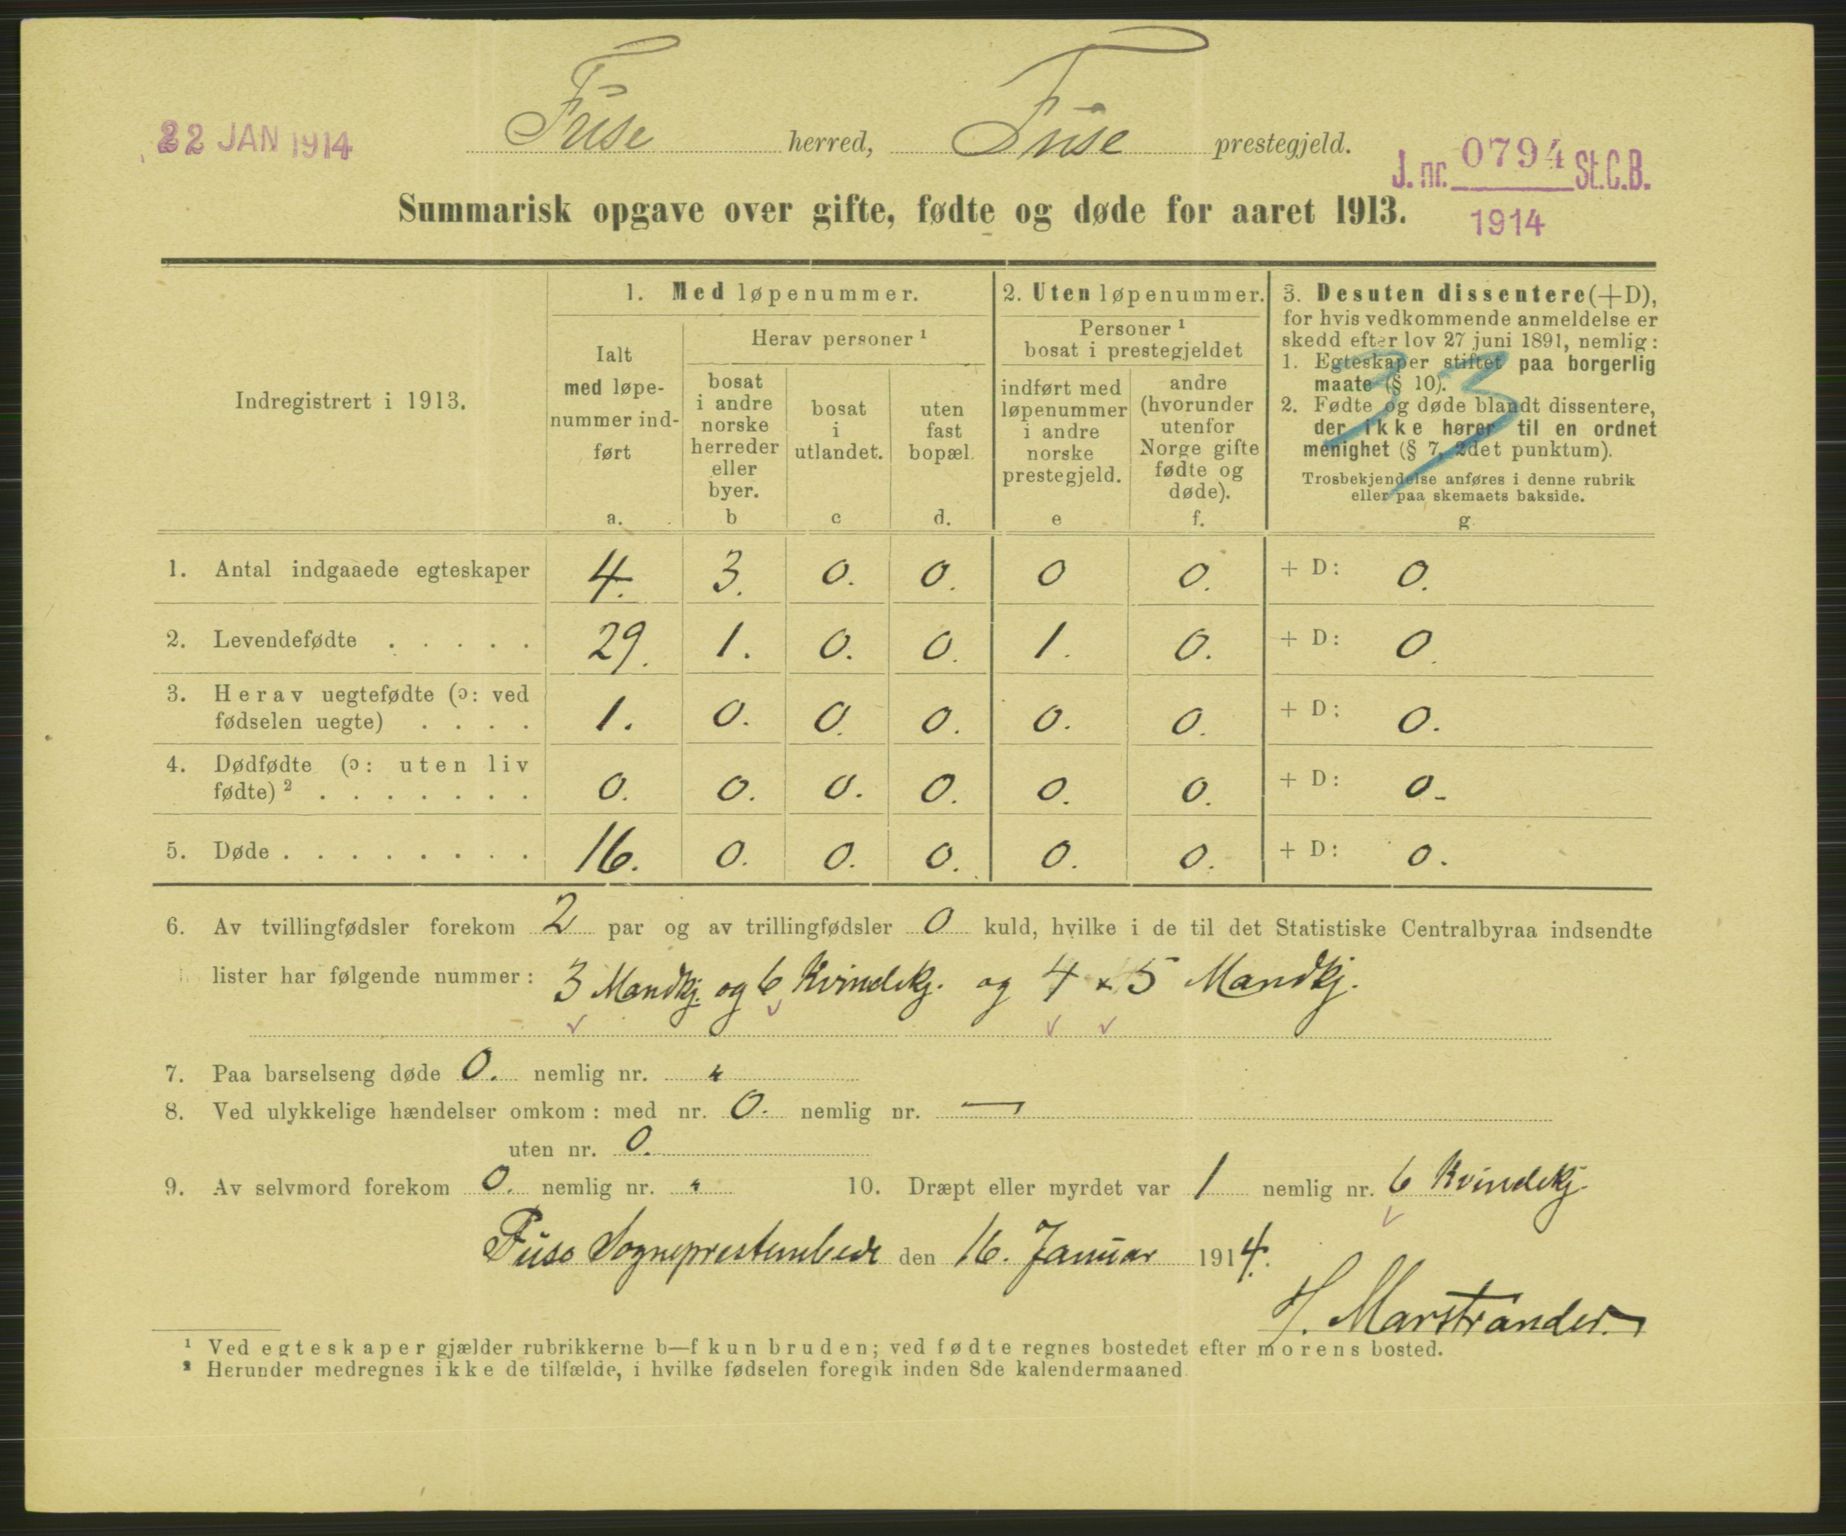 22 JAN 1914
Fuse herred, Fuse prestegjeld.
J. nr. 0794 St.C.B.
1914
Summarisk opgave over gifte, fødte og døde for aaret 1913.
Indregistrert i 1913.
1. Med løpenummer.
Ialt med løpenummer indført
a.
Herav personer ¹
bosat i andre norske herreder eller byer.
b
bosat i utlandet.
c
uten fast bopæl.
d.
2. Uten løpenummer.
Personer ¹ bosat i prestegjeldet
indført med løpenummer i andre norske prestegjeld.
e
andre (hvorunder utenfor Norge gifte fødte og døde).
f.
3. Desuten dissentere (+D),
for hvis vedkommende anmeldelse er
skedd efter lov 27 juni 1891, nemlig:
1. Egteskaper stiftet paa borgerlig
maate (§ 10).
2. Fødte og døde blandt dissentere,
der ikke hører til en ordnet
menighet (§ 7, 2det punktum).
Trosbekjendelse anføres i denne rubrik
eller paa skemaets bakside.
g
33
1. Antal indgaaede egteskaper 4. 3. 0. 0. 0 0. + D: 0.
2. Levendefødte . . . . . 29. 1. 0. 0. 1. 0. + D: 0.
3. Herav uegtefødte (ɔ: ved
fødselen uegte) . . . . 1. 0. 0. 0. 0. 0. + D: 0.
4. Dødfødte (ɔ: uten liv
fødte) ² . . . . . . . 0. 0. 0. 0. 0. 0. + D: 0.
5. Døde . . . . . . . . 16. 0. 0. 0. 0. 0. + D: 0.
6. Av tvillingfødsler forekom 2 par og av trillingfødsler 0 kuld, hvilke i de til det Statistiske Centralbyraa indsendte
lister har følgende nummer: 3 Mandkj. og 6 Kvindekj. og 4 x 5 Mandkj.
7. Paa barselseng døde 0. nemlig nr. "
8. Ved ulykkelige hændelser omkom: med nr. 0. nemlig nr. —
uten nr. 0.
9. Av selvmord forekom 0. nemlig nr. " 10. Dræpt eller myrdet var 1 nemlig nr. 6 Kvindekj.
Fuse Sogneprestembede den 16. Januar 1914.
H. Marstrander
¹ Ved egteskaper gjælder rubrikkerne b—f kun bruden; ved fødte regnes bostedet efter morens bosted.
² Herunder medregnes ikke de tilfælde, i hvilke fødselen foregik inden 8de kalendermaaned.